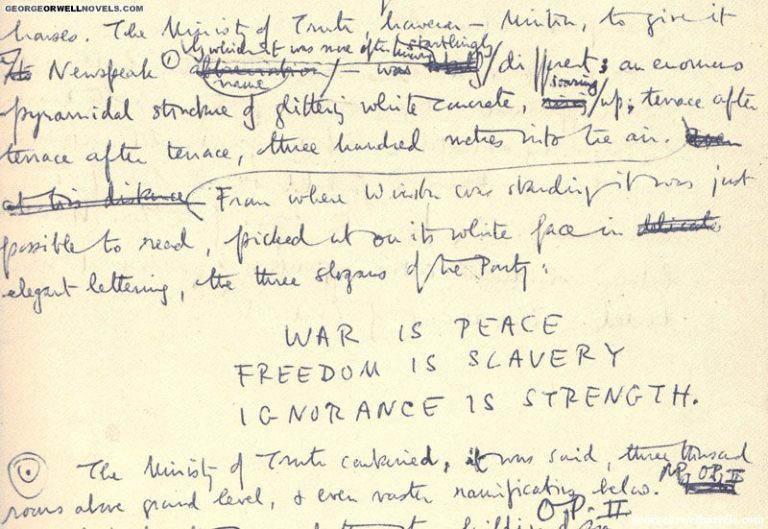 GEORGEORWELLNOVELS.COM
houses. The Ministry of Truth, however – Minitru, to give it
by which it was now often known startlingly
Its Newspeak abbreviation / – was / different: an enormous
name soaring
pyramidal structure of glittering white concrete, / up, terrace after
terrace after terrace, three hundred metres into the air. Even
at this distance From where Winston was standing it was just
possible to read, picked out on its white face in delicate
elegant lettering, the three slogans of the Party:
WAR IS PEACE
FREEDOM IS SLAVERY
IGNORANCE IS STRENGTH.
The Ministry of Truth contained, it was said, three thousand
rooms above ground level, & even vaster ramifications below.
georgeorwellnovels.com